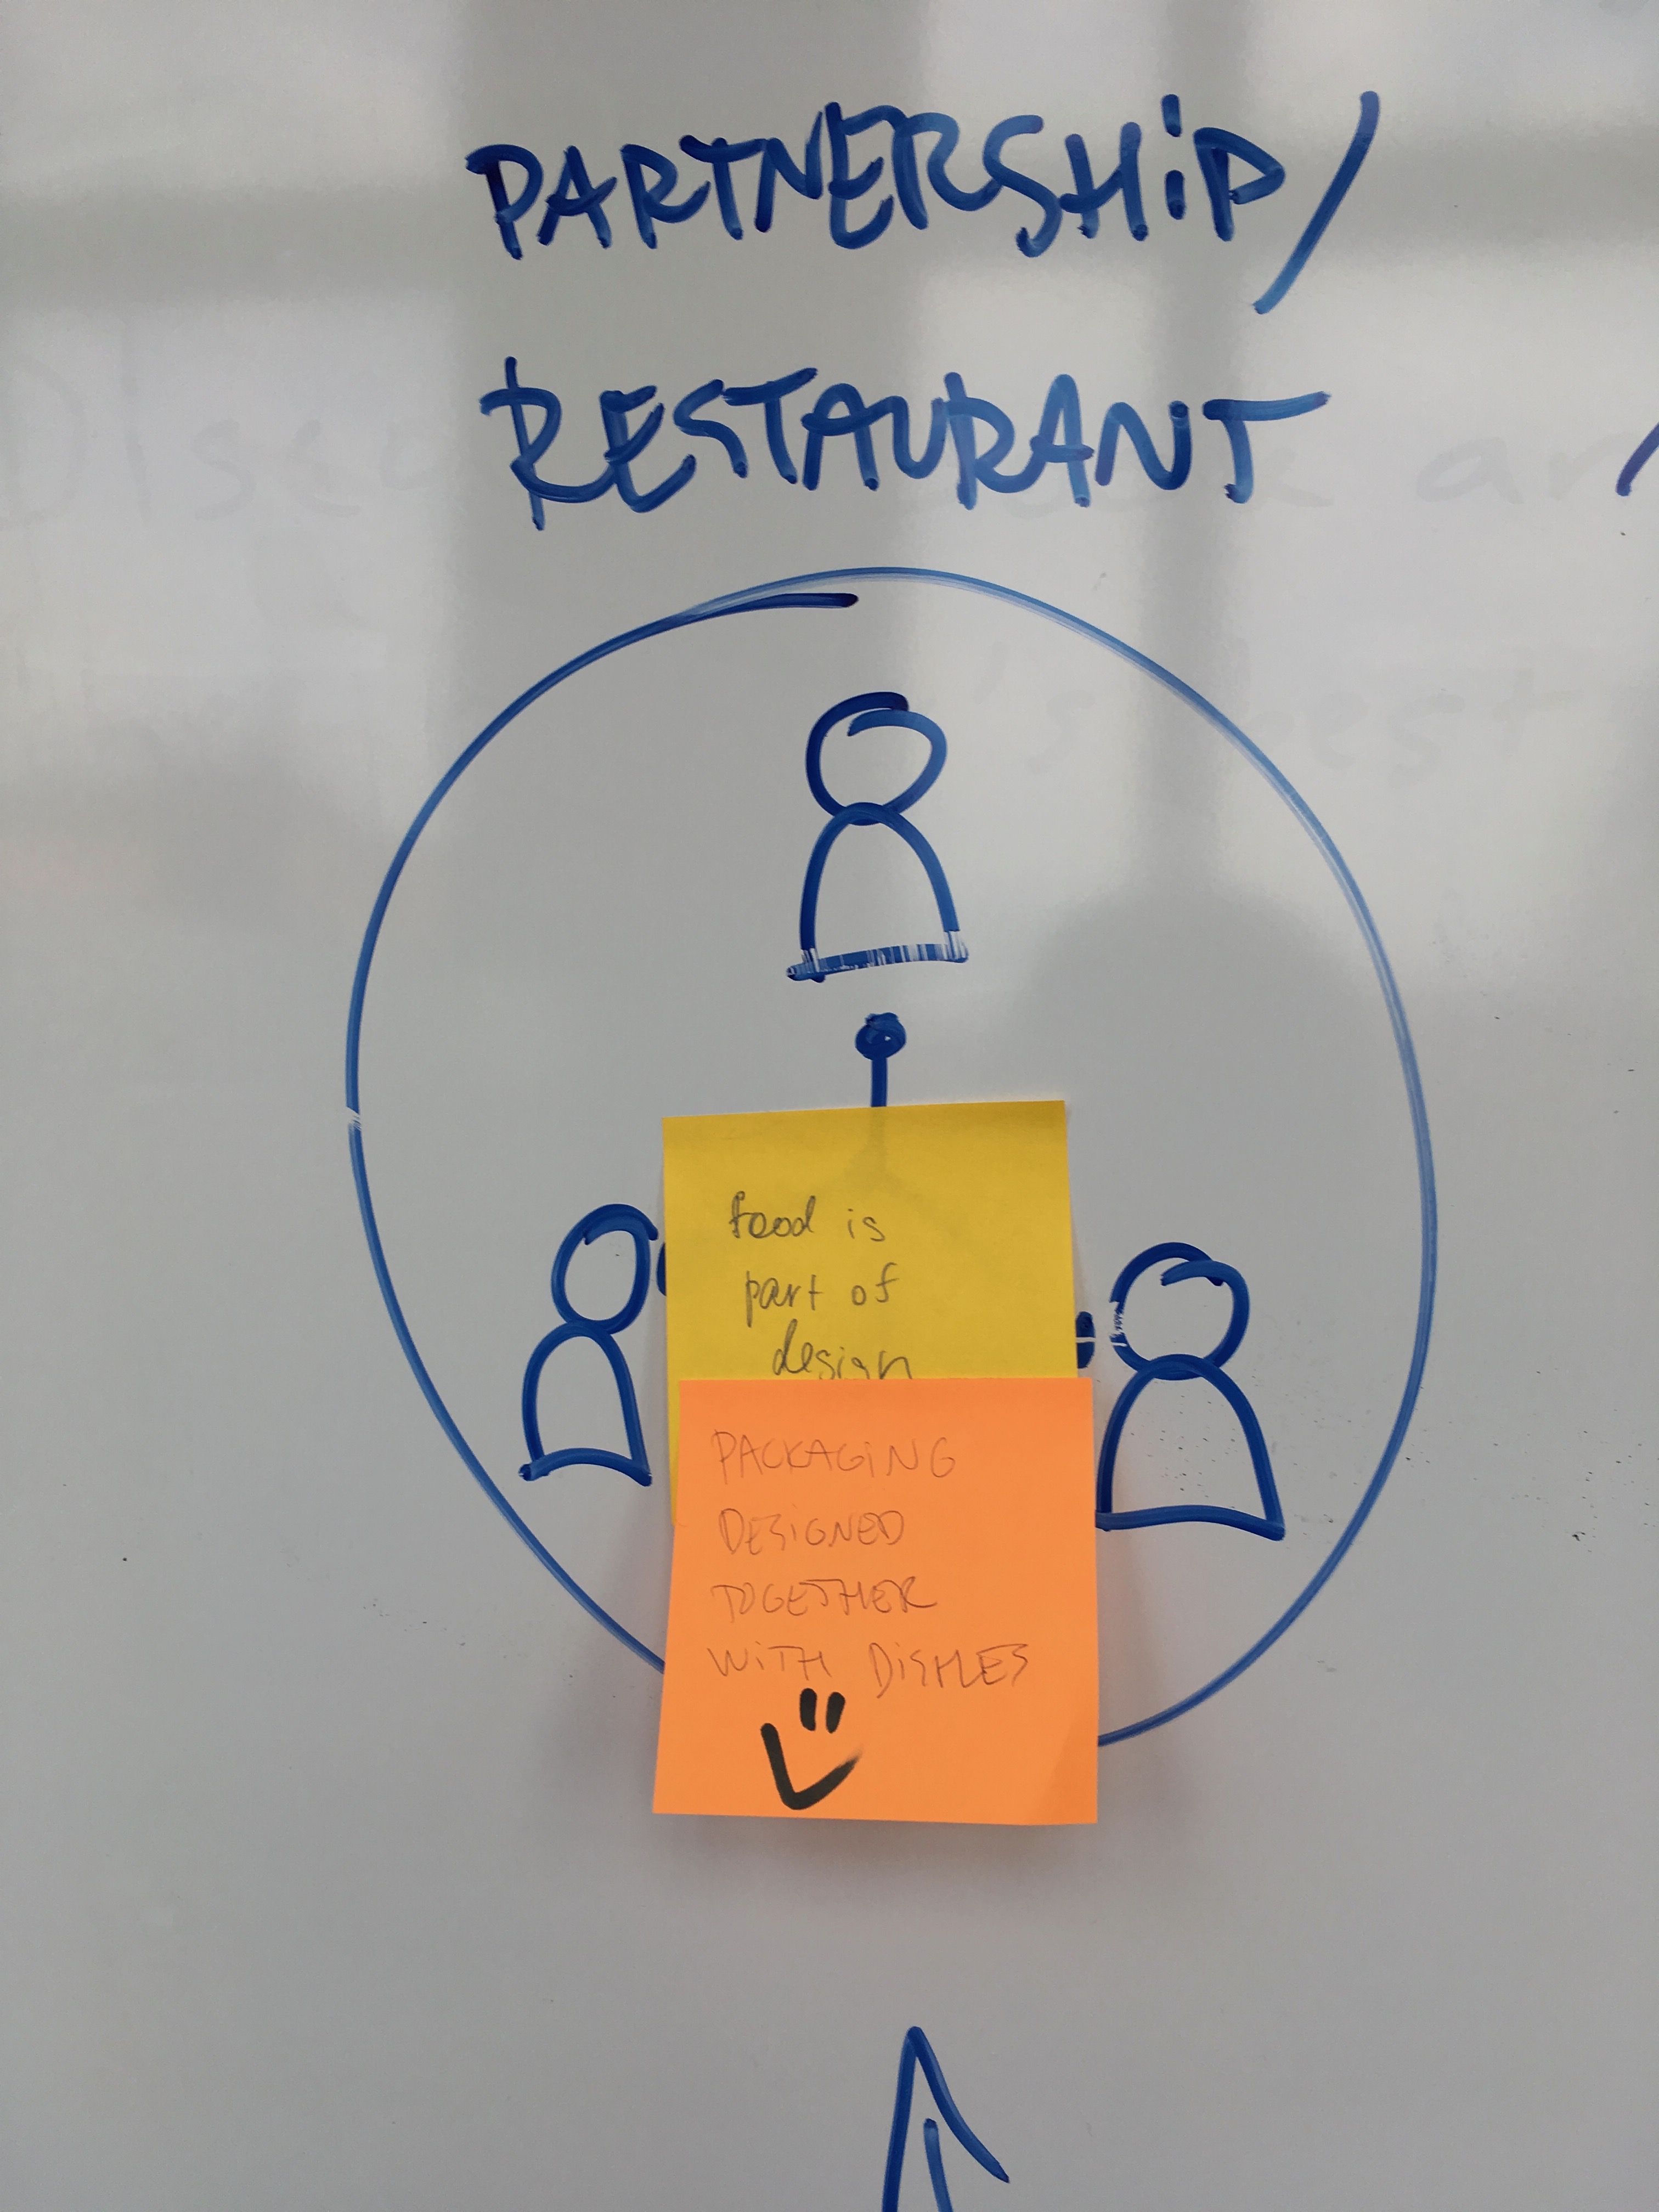 PARTNERSHiP/
RESTAURANT
food is
part of
design
PACKAGiNG
DESiGNED
TOGETHER
WiTH DiSHES